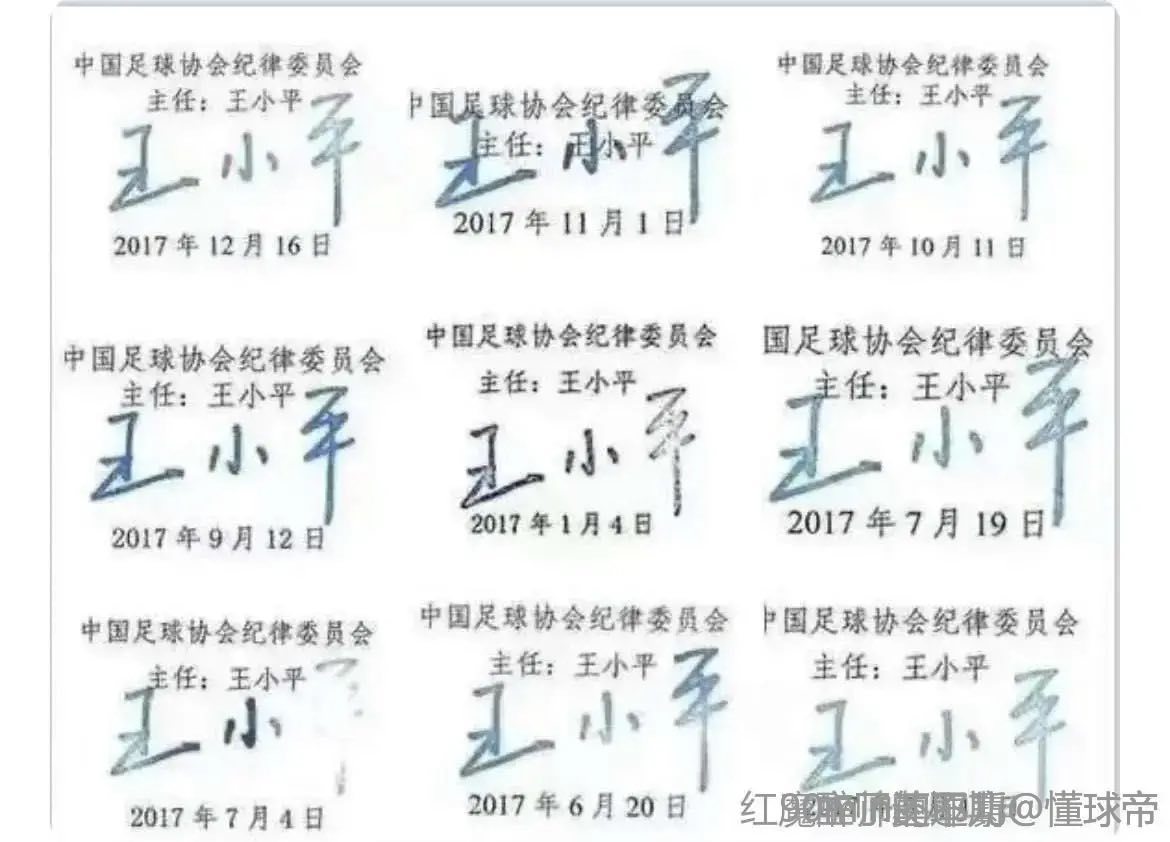 中国足球协会纪律委员会
主任：王小平
王小平
2017 年 12 月 16 日
中国足球协会纪律委员会
主任：王小平
王小平
2017 年 11 月 1 日
中国足球协会纪律委员会
主任：王小平
王小平
2017 年 10 月 11 日
中国足球协会纪律委员会
主任：王小平
王小平
2017 年 9 月 12 日
中国足球协会纪律委员会
主任：王小平
王小平
2017 年 1 月 4 日
国足球协会纪律委员会
主任：王小平
王小平
2017 年 7 月 19 日
中国足球协会纪律委员会
主任：王小平
王小平
2017 年 7 月 4 日
中国足球协会纪律委员会
主任：王小平
王小平
2017 年 6 月 20 日
中国足球协会纪律委员会
主任：王小平
王小平
@懂球帝